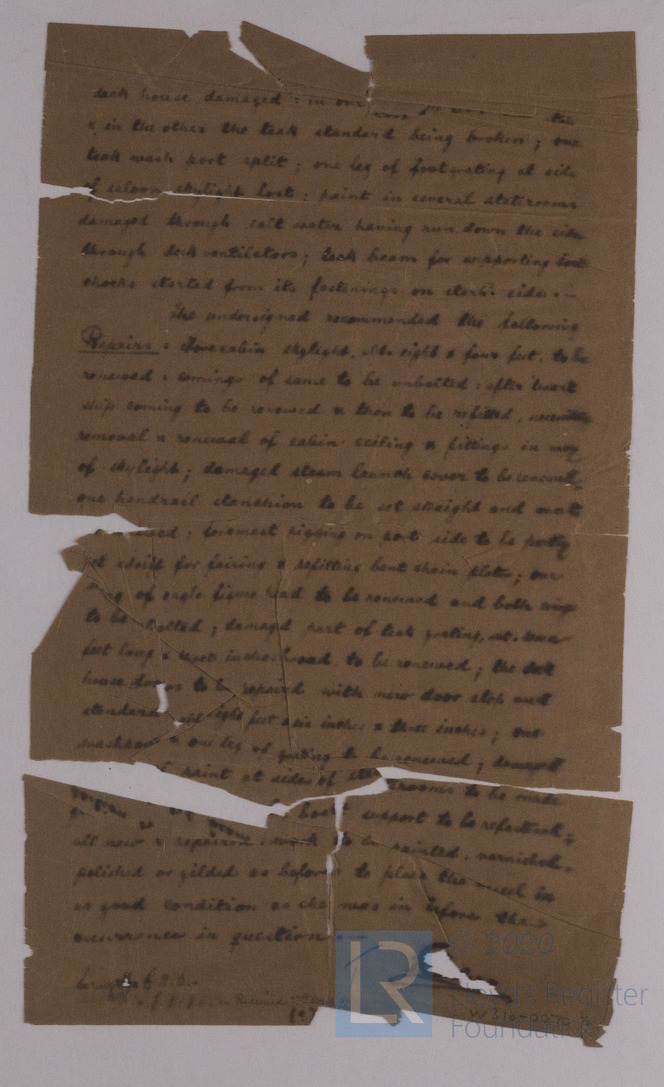 deck house damaged : in one
& in the other the teak standard being broken ; one
teak wash port split ; one leg of footgrating at side
of saloon skylight lost ; paint in several staterooms
damaged through salt water having run down the side
through deck ventilators ; teak beam for supporting boat
chocks started from its fastenings on starb. side . -
The undersigned recommended the following
Repairs : Forecabin skylight, abt. eight x four feet, to be
renewed : comings of same to be unbolted : after twart
ship coming to be renewed & then to be refitted,
removal & renewal of cabin ceiling & fittings in way
of skylight ; damaged steam launch cover to be renewed,
one handrail stanchion to be set straight and one
: foremost rigging on port side to be partly
set adrift for fairing & refitting bent chain plate ; one
wing of eagle figure head to be renewed and both wings
to be bolted ; damaged part of teak grating, abt.
feet long x inches broad, to be renewed ; the deck
house doors to be repaired with new door stop and
standard, abt eight feet x six inches x three inches ; one
washport & one leg of grating to be renewed ; damaged
paint at sides of staterooms to be made
boat support to be refastened ;
all new & repaired work to be painted, varnished,
polished or gilded as before to place the vessel in
as good condition as she was in before the
occurrence in question
© 2020
Lloyd's Register
Foundation
LR